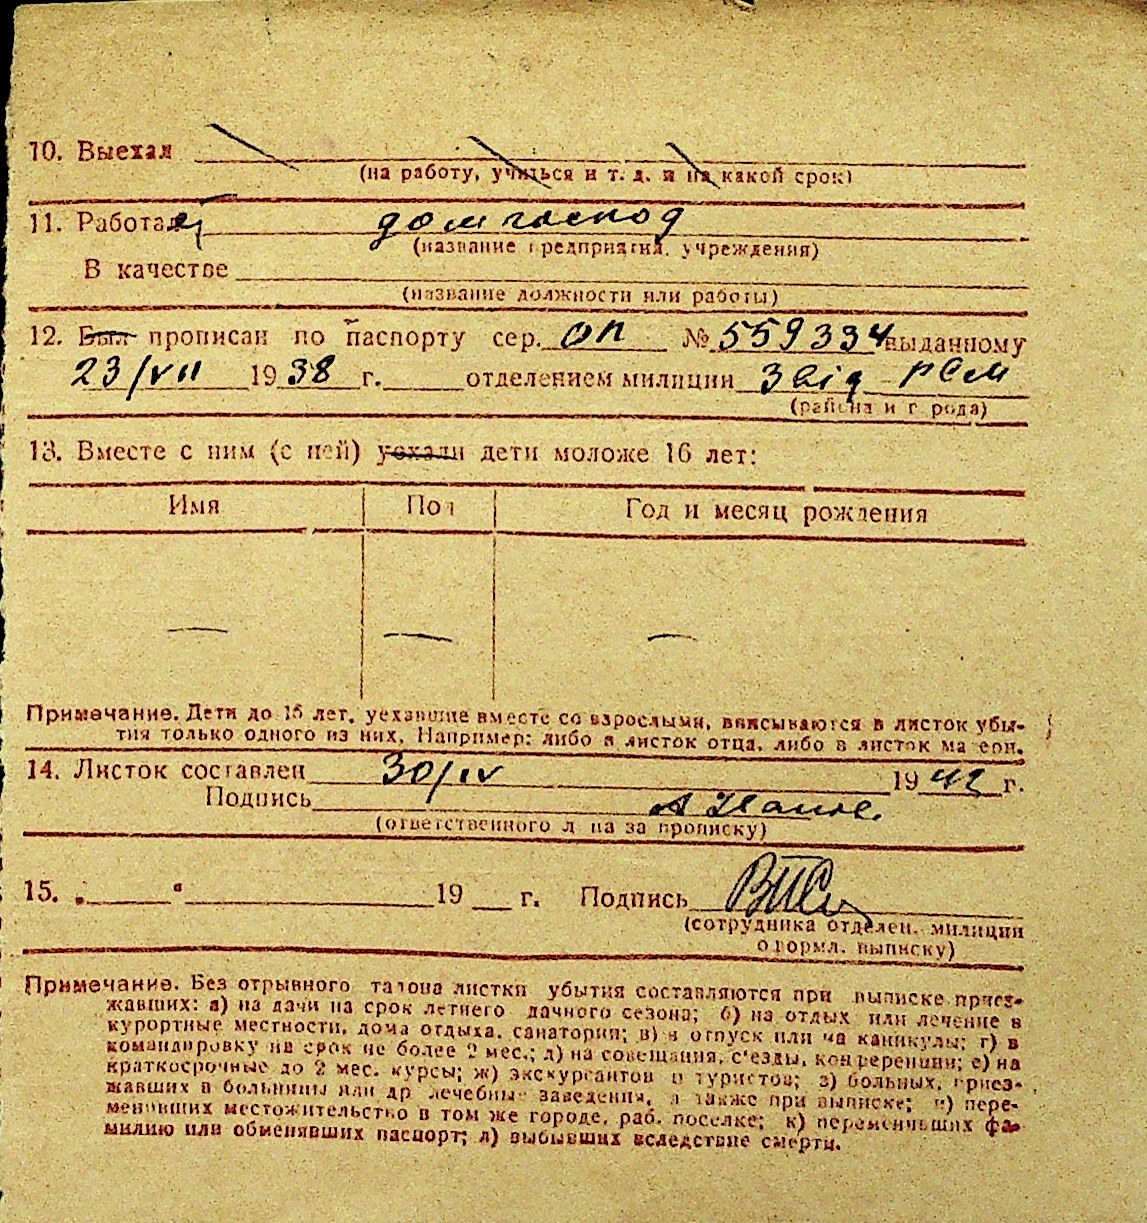 10. Выехал
(на работу, учиться и т. д. и на какой срок)
11. Работал
(название предприятия, учреждения)
В качестве
(название должности или работы)
12. Был прописан по паспорту сер. ОП № 559334 выданному
23/VII 1938 г. отделением милиции 3 від РСМ
(района и города)
13. Вместе с ним (с ней) уехали дети моложе 16 лет:
Имя Пол Год и месяц рождения
— — —
Примечание. Дети до 15 лет, уехавшие вместе со взрослыми, вписываются в листок убы-
тия только одного из них. Например: либо в листок отца, либо в листок матери.
14. Листок составлен 30/IV 1942 г.
Подпись
(ответственного лица за прописку)
15. „ “ 19 г. Подпись
(сотрудника отделен. милиции
оформл. выписку)
Примечание. Без отрывного талона листки убытия составляются при выписке приез-
жавших: а) на дачи на срок летнего дачного сезона; б) на отдых или лечение в
курортные местности, дома отдыха, санатории; в) в отпуск или на каникулы; г) в
командировку на срок не более 2 мес.; д) на совещания, с'езды, конференции; е) на
краткосрочные до 2 мес. курсы; ж) экскурсантов и туристов; з) больных, приез-
жавших в больницы или др лечебные заведения, а также при выписке; и) пере-
менивших местожительство в том же городе, раб. поселке; к) переменивших фа-
милию или обменявших паспорт; л) выбывших вследствие смерти.